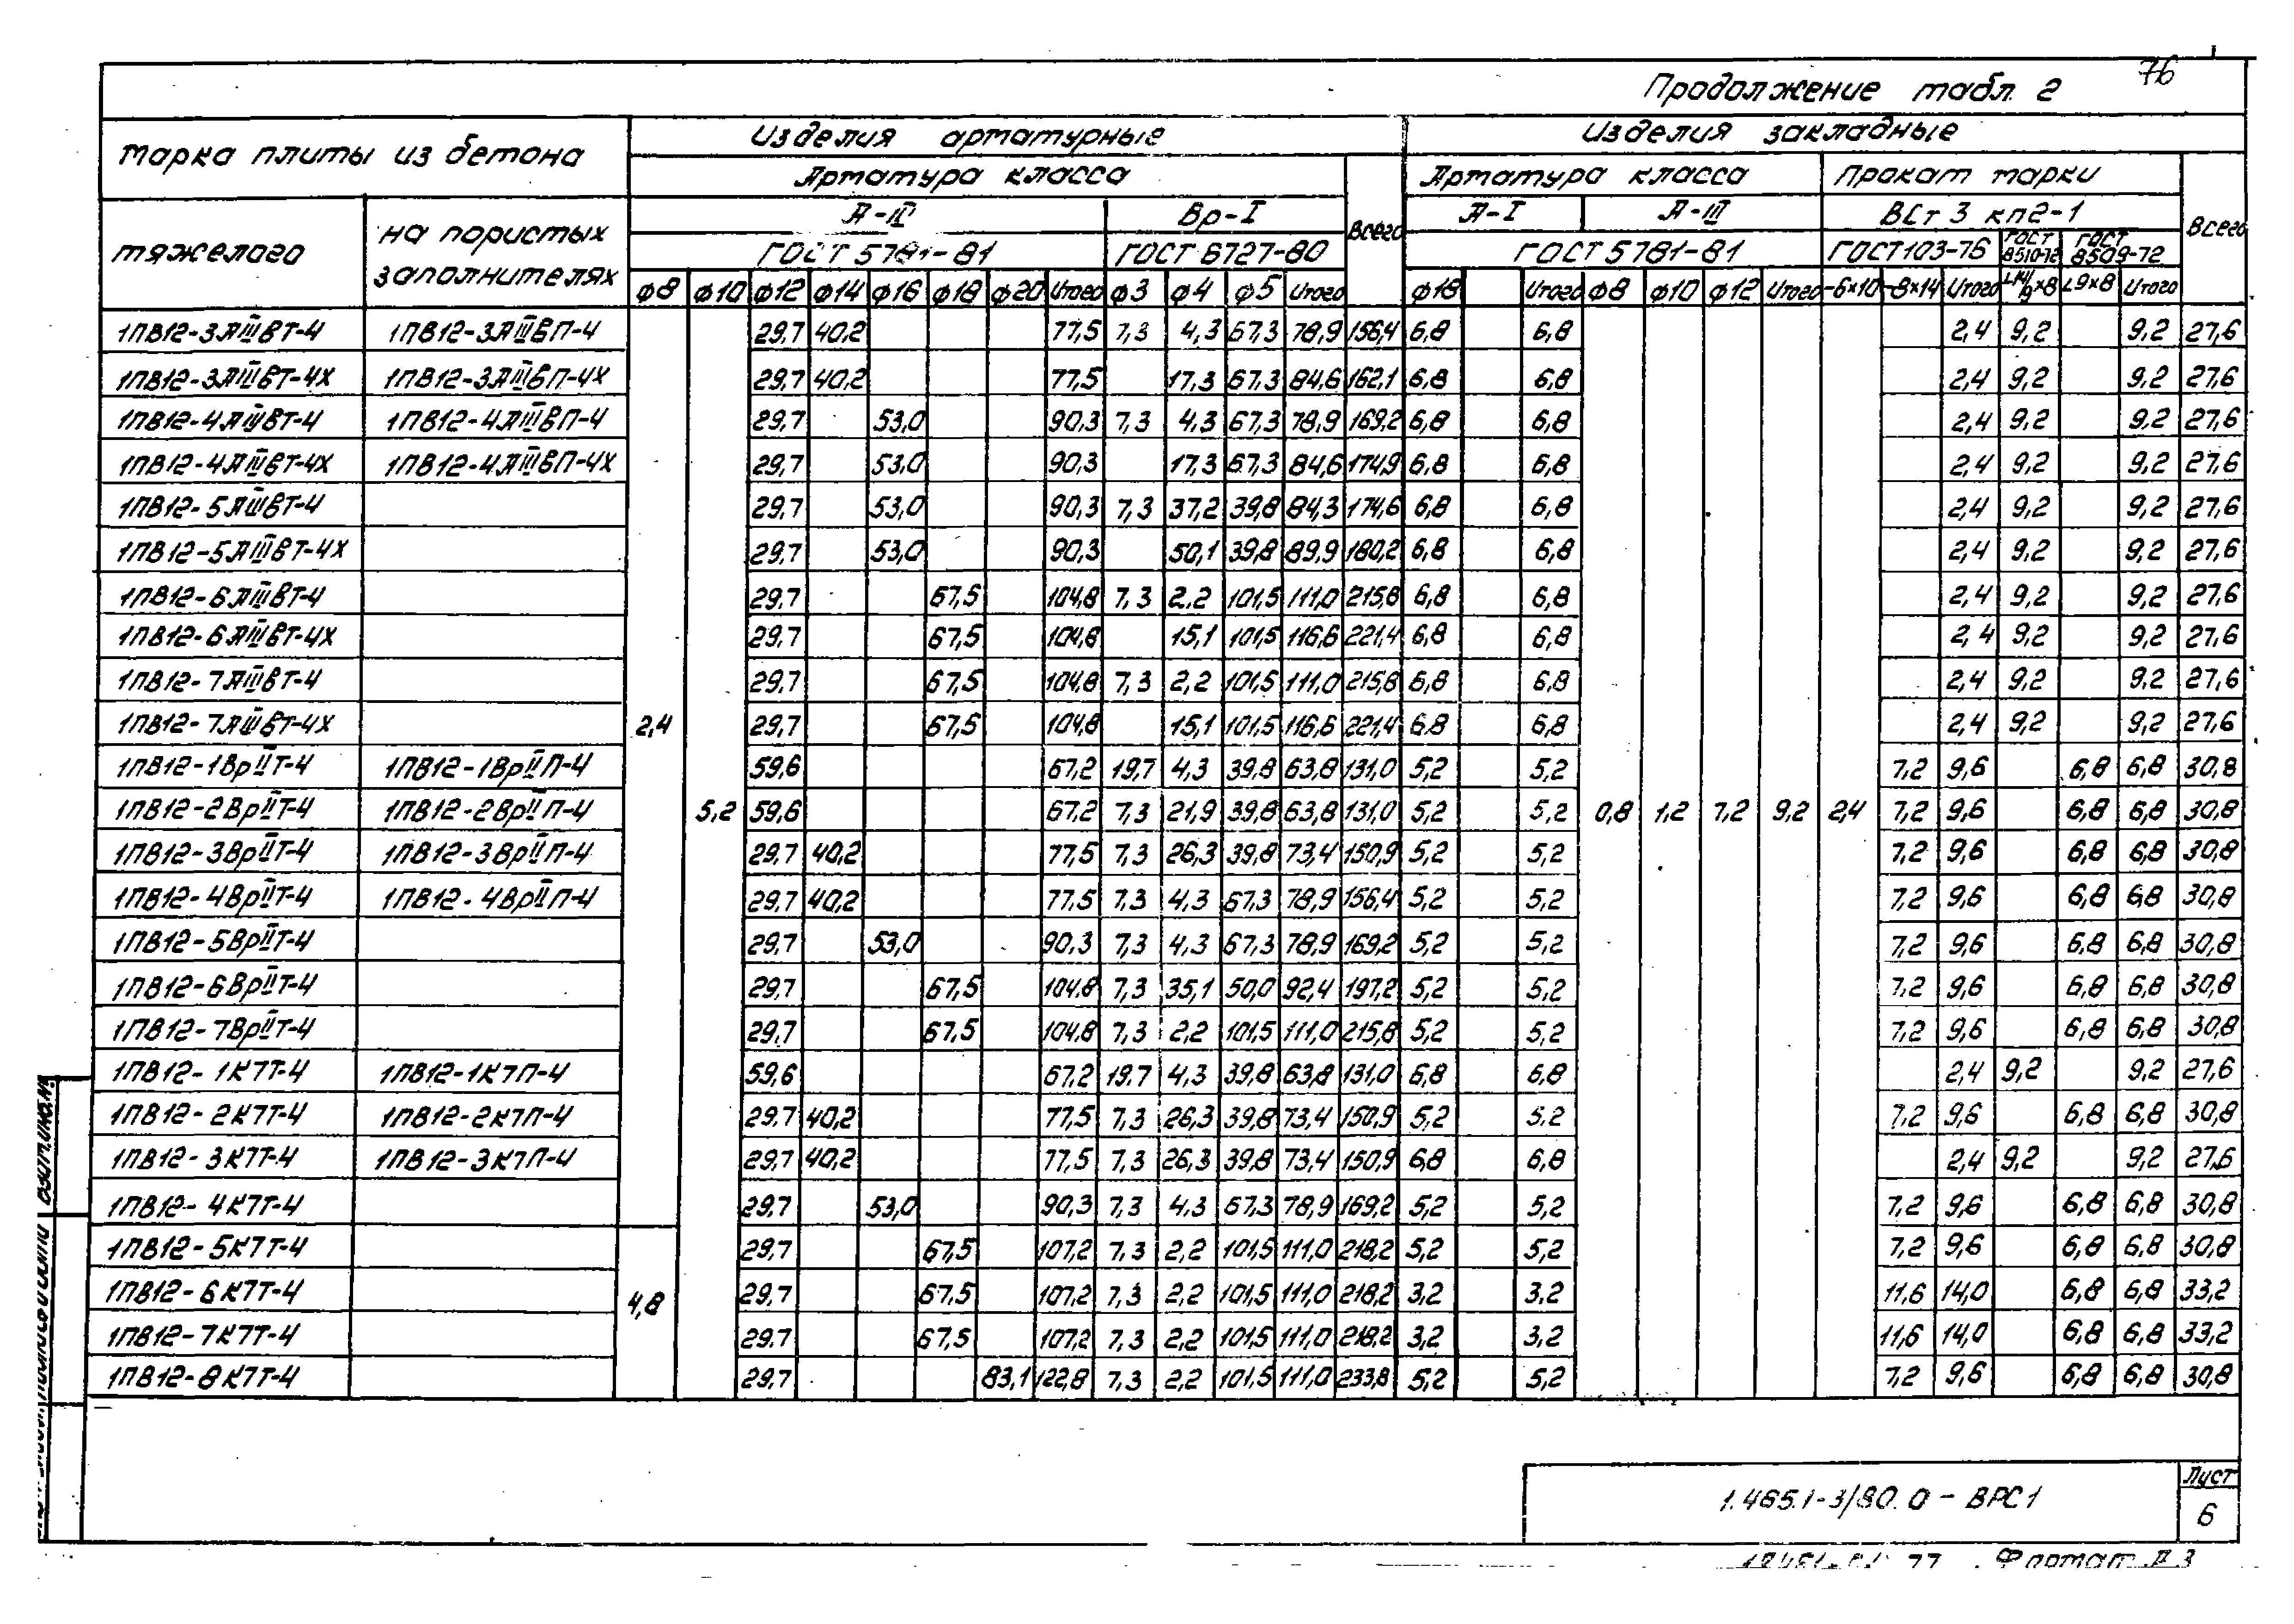 76
Продолжение табл. 2
Марка плиты из бетона
Изделия арматурные
Изделия закладные
Арматура класса
Всего
Арматура класса
Прокат марки
Всего
тяжелого
на пористых заполнителях
А-III
Вр-I
А-I
А-III
ВСт 3 кп2-1
ГОСТ 5781-81
ГОСТ 6727-80
ГОСТ 5781-81
ГОСТ 103-76
ГОСТ 8510-72
ГОСТ 8509-72
ф8 ф10 ф12 ф14 ф16 ф18 ф20 Итого ф3 ф4 ф5 Итого ф18 Итого ф8 ф10 ф12 Итого -6×10 -8×14 Итого L14/9×8 L9×8 Итого
1ПВ12-3АIIIвТ-4 1ПВ12-3АIIIвП-4 29,7 40,2 77,5 7,3 4,3 67,3 78,9 156,4 6,8 6,8 2,4 9,2 9,2 27,6
1ПВ12-3АIIIвТ-4Х 1ПВ12-3АIIIвП-4Х 29,7 40,2 77,5 17,3 67,3 84,6 162,1 6,8 6,8 2,4 9,2 9,2 27,6
1ПВ12-4АIIIвТ-4 1ПВ12-4АIIIвП-4 29,7 53,0 90,3 7,3 4,3 67,3 78,9 169,2 6,8 6,8 2,4 9,2 9,2 27,6
1ПВ12-4АIIIвТ-4Х 1ПВ12-4АIIIвП-4Х 29,7 53,0 90,3 17,3 67,3 84,6 174,9 6,8 6,8 2,4 9,2 9,2 27,6
1ПВ12-5АIIIвТ-4 29,7 53,0 90,3 7,3 37,2 39,8 84,3 174,6 6,8 6,8 2,4 9,2 9,2 27,6
1ПВ12-5АIIIвТ-4Х 29,7 53,0 90,3 50,1 39,8 89,9 180,2 6,8 6,8 2,4 9,2 9,2 27,6
1ПВ12-6АIIIвТ-4 29,7 67,5 104,8 7,3 2,2 101,5 111,0 215,8 6,8 6,8 2,4 9,2 9,2 27,6
1ПВ12-6АIIIвТ-4Х 29,7 67,5 104,8 15,1 101,5 116,6 221,4 6,8 6,8 2,4 9,2 9,2 27,6
1ПВ12-7АIIIвТ-4 29,7 67,5 104,8 7,3 2,2 101,5 111,0 215,8 6,8 6,8 2,4 9,2 9,2 27,6
1ПВ12-7АIIIвТ-4Х 2,4 29,7 67,5 104,8 15,1 101,5 116,6 221,4 6,8 6,8 2,4 9,2 9,2 27,6
1ПВ12-1ВрIIТ-4 1ПВ12-1ВрIIП-4 59,6 67,2 19,7 4,3 39,8 63,8 131,0 5,2 5,2 7,2 9,6 6,8 6,8 30,8
1ПВ12-2ВрIIТ-4 1ПВ12-2ВрIIП-4 5,2 59,6 67,2 7,3 21,9 39,8 63,8 131,0 5,2 5,2 0,8 1,2 7,2 9,2 2,4 7,2 9,6 6,8 6,8 30,8
1ПВ12-3ВрIIТ-4 1ПВ12-3ВрIIП-4 29,7 40,2 77,5 7,3 26,3 39,8 73,4 150,9 5,2 5,2 7,2 9,6 6,8 6,8 30,8
1ПВ12-4ВрIIТ-4 1ПВ12-4ВрIIП-4 29,7 40,2 77,5 7,3 4,3 67,3 78,9 156,4 5,2 5,2 7,2 9,6 6,8 6,8 30,8
1ПВ12-5ВрIIТ-4 29,7 53,0 90,3 7,3 4,3 67,3 78,9 169,2 5,2 5,2 7,2 9,6 6,8 6,8 30,8
1ПВ12-6ВрIIТ-4 29,7 67,5 104,8 7,3 35,1 50,0 92,4 197,2 5,2 5,2 7,2 9,6 6,8 6,8 30,8
1ПВ12-7ВрIIТ-4 29,7 67,5 104,8 7,3 2,2 101,5 111,0 215,8 5,2 5,2 7,2 9,6 6,8 6,8 30,8
1ПВ12-1К7Т-4 1ПВ12-1К7П-4 59,6 67,2 19,7 4,3 39,8 63,8 131,0 6,8 6,8 2,4 9,2 9,2 27,6
1ПВ12-2К7Т-4 1ПВ12-2К7П-4 29,7 40,2 77,5 7,3 26,3 39,8 73,4 150,9 5,2 5,2 7,2 9,6 6,8 6,8 30,8
1ПВ12-3К7Т-4 1ПВ12-3К7П-4 29,7 40,2 77,5 7,3 26,3 39,8 73,4 150,9 6,8 6,8 2,4 9,2 9,2 27,6
1ПВ12-4К7Т-4 29,7 53,0 90,3 7,3 4,3 67,3 78,9 169,2 5,2 5,2 7,2 9,6 6,8 6,8 30,8
1ПВ12-5К7Т-4 29,7 67,5 107,2 7,3 2,2 101,5 111,0 218,2 5,2 5,2 7,2 9,6 6,8 6,8 30,8
1ПВ12-6К7Т-4 4,8 29,7 67,5 107,2 7,3 2,2 101,5 111,0 218,2 3,2 3,2 11,6 14,0 6,8 6,8 33,2
1ПВ12-7К7Т-4 29,7 67,5 107,2 7,3 2,2 101,5 111,0 218,2 3,2 3,2 11,6 14,0 6,8 6,8 33,2
1ПВ12-8К7Т-4 29,7 83,1 122,8 7,3 2,2 101,5 111,0 233,8 5,2 5,2 7,2 9,6 6,8 6,8 30,8
1.465.1-3/80.0 - ВРС1
Лист
6
77
Формат А3